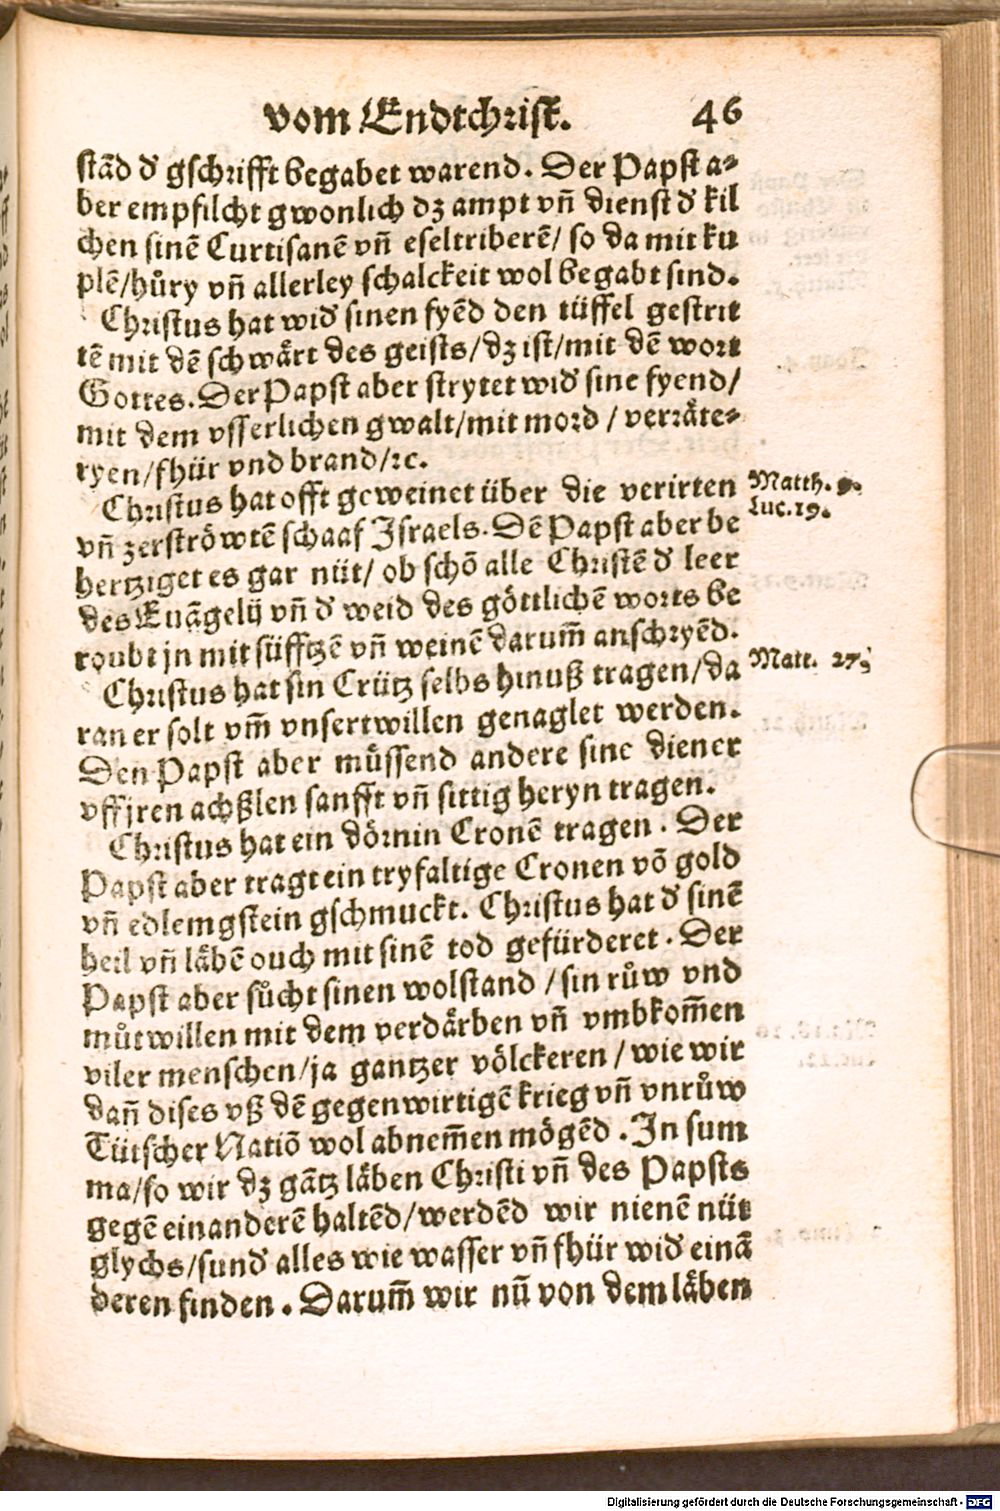 vom Endtchrist. 46
stãd d̕ gschrifft begabet warend. Der Papst a⸗
ber empfilcht gwonlich dz ampt vñ dienst d̕ kil
chen sinẽ Curtisanẽ vñ eseltriberẽ/ so da mit ku
plẽ/hůry vñ allerley schalckeit wol begabt sind.
Christus hat wid̕ sinen fyẽd den tüffel gestrit
tẽ mit dẽ schwärt des geists/dz ist/mit dẽ wort
Gottes. Der Papst aber strytet wid̕ sine fyend/
mit dem vsserlichen gwalt/mit mord / verräte⸗
ryen/fhür vnd brand/ꝛc.
Christus hat offt geweinet über die verirten
Matth. 9.
Luc. 19.
vñ zerströwtẽ schaaf Israels. Dẽ Papst aber be
hertziget es gar nüt/ ob schõ alle Christẽ d̕ leer
des Euãgelij vñ d̕ weid des göttlichẽ worts be
roubt jn mit süfftzẽ vñ weinẽ darum̃ anschryẽd.
Christus hat sin Crütz selbs hinuß tragen/da
Matt. 27.
ran er solt vm̃ vnsertwillen genaglet werden.
Den Papst aber müssend andere sine diener
vff jren achßlen sanfft vñ sittig heryn tragen.
Christus hat ein dörnin Cronẽ tragen. Der
Papst aber tragt ein tryfaltige Cronen võ gold
vñ edlem gstein gschmuckt. Christus hat d̕ sinẽ
heil vñ läbẽ ouch mit sinẽ tod gefürderet. Der
Papst aber sůcht sinen wolstand / sin růw vnd
můtwillen mit dem verdärben vñ vmbkom̃en
viler menschen/ja gantzer völckeren / wie wir
dañ dises vß dẽ gegenwirtigẽ krieg vñ vnrůw
Tütscher Natiõ wol abnem̃en mögẽd. In sum
ma/so wir dz gãtz läben Christi vñ des Papsts
gegẽ einanderẽ haltẽd/werdẽd wir nienẽ nüt
glychs/sund̕ alles wie wasser vñ fhür wid̕ einã
deren finden. Darum̃ wir nũ von dem läben
Digitalisierung gefördert durch die Deutsche Forschungsgemeinschaft - DFG